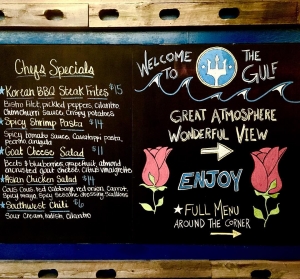 Chefs Specials
Korean BBQ Steak Frites $15
Bistro Filet, pickled peppers, cilantro
Chimichurri Sauce, Crispy potatoes
Spicy Shrimp Pasta $14
Spicy tomato sauce, Casarecci pasta,
pecorino, arugula
Goat Cheese Salad $11
Beets & blueberries, grapefruit, almond
encrusted goat cheese, Citrus vinaigrette
Asian Chicken Salad $14
Cous Cous, red cabbage, red onion, Carrot,
Spicy mayo, Spicy Sesame dressing, Scallions
Southwest Chili $6
Sour Cream, radish, Cilantro
Welcome to The Gulf
Great Atmosphere
Wonderful View
Enjoy
Full Menu
Around the Corner